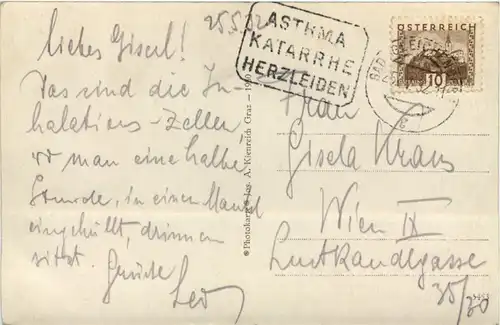 25.5.32
Liebes Giserl!
Das sind die In-
halations-Zellen,
wo man eine halbe
Stunde, in einen Mantel
eingehüllt, drinnen
sitzt. Grüße
Leo
ASTHMA
KATARRHE
HERZLEIDEN
ÖSTERREICH
10
BAD
Photokarte Jos. A. Kienreich Graz
Frau
Gisela Kraus
Wien IX
Lustkandlgasse
35/30